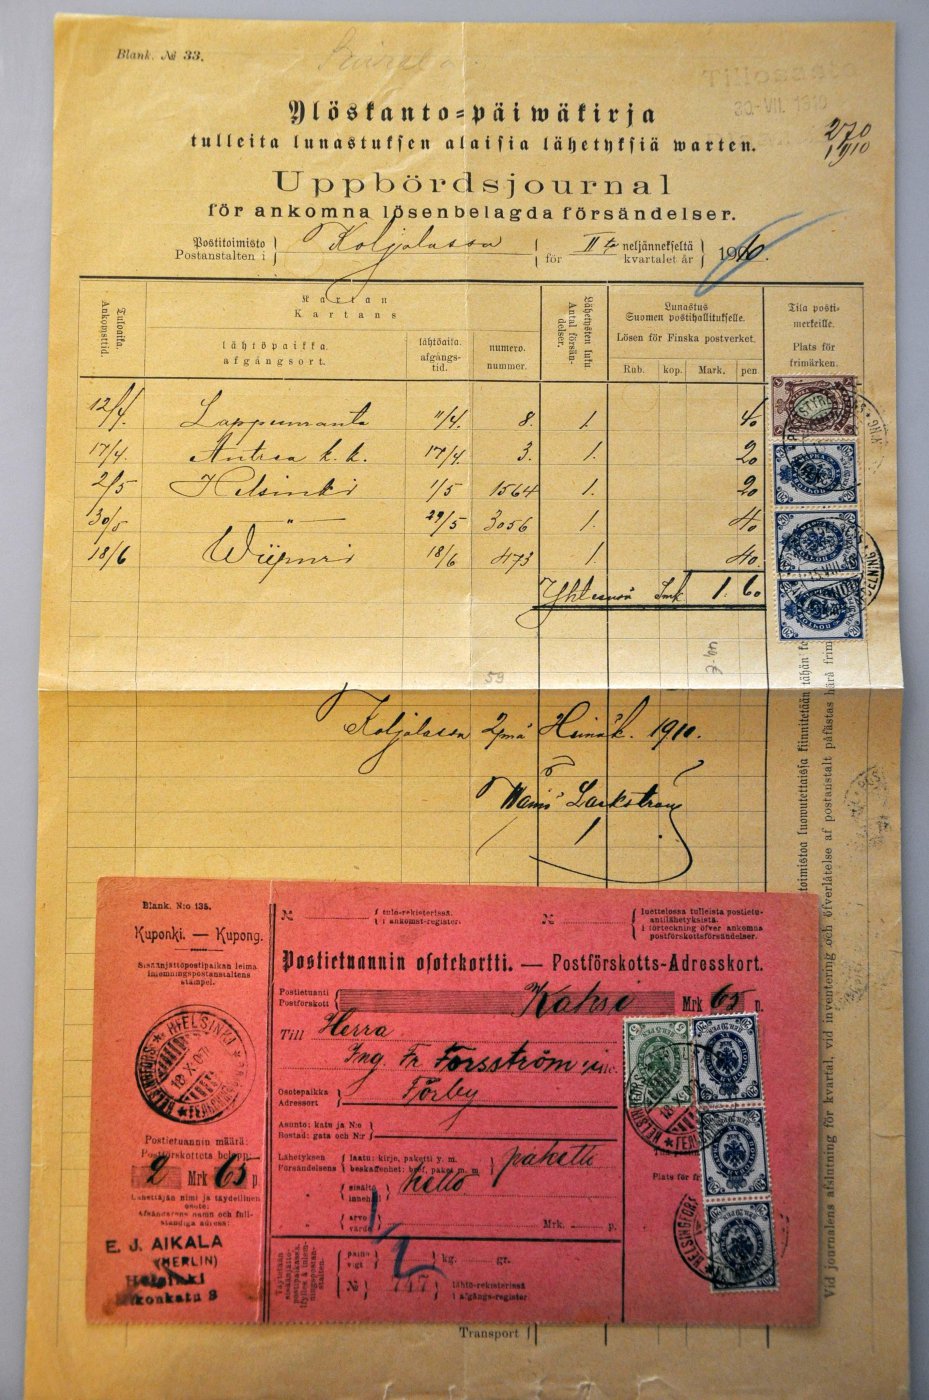 Blank. № 33.
30.VII.1910
270
1910
Ylöskanto-päiwäkirja
tulleita lunastuksen alaisia lähetyksiä warten.
Uppbördsjournal
för ankomna lösenbelagda försändelser.
Postitoimisto
Postanstalten i
Koljolassa
för
II
neljännekseltä
kvartalet år
1910.
Tuloaika.
Ankomsttid.
Kartan
Kartans
lähtöpaikka
afgångsort.
lähtöaika.
afgångs-
tid.
numero.
nummer.
Lähetysten luku
Antal försän-
delser.
Lunastus
Suomen postihallitukselle.
Lösen för Finska postverket.
Rub. kop. Mark. pen
Tila posti-
merkeille.
Plats för
frimärken.
12/4. Lappeenranta 11/4. 8. 1. 40
17/4. Antrea k.k. 17/4. 3. 1. 20
2/5 Helsinki 1/5 1564 1. 20
30/5 " 29/5 3056 1. 40
18/6 Wiipuri 18/6 473 1. 40.
Yhteensä Smk 1. 60
59
Koljolassa 2 p:nä Heinäk. 1910.
Blank. N:o 135.
Kuponki. — Kupong.
Sisäänjättöpostipaikan leima
Inlemningspostanstaltens
stämpel.
HELSINKI
HELSINGFORS
18.X.07
Postietuannin määrä:
Postförskottets belopp:
2 Mrk 65 p.
Lähettäjän nimi ja täydellinen
osote:
Afsändarens namn och full-
ständiga adress:
E. J. AIKALA
(HERLIN)
Helsinki
Mikonkatu 8
№
tulo-rekisterissä.
i ankomst-register.
№
luettelossa tulleista postietu-
antilähetyksistä.
i förteckning öfver ankomna
postförskottsförsändelser.
Postietuannin osotekortti. — Postförskotts-Adresskort.
Postietuanti
Postförskott
Kaksi Mrk 65 p.
Till Herra
Ing. Fr. Forsström
Osotepaikka
Adressort
Förby
Asunto: katu ja N:o
Bostad: gata och N:r
Lähetyksen
Försändelsens
laatu: kirje, paketti y. m.
beskaffenhet: bref, paket m. m.
paketti
sisältö
innehåll
arvo
värde
Mrk. p.
Plats för fr
Täytetään
sisäänjättö-
postipaikassa.
Ifylles å inlem-
ningspostan-
stalten.
paino
vigt
kg. gr.
№ 747
lähtö-rekisterissä
i afgångs-register.
1/2
Transport
toimistoa luowutettaissa kiinnitetään tähän
Vid journalens afslutning för kvartal, vid inventering och öfverlåtelse af postanstalt påfästas härå frim